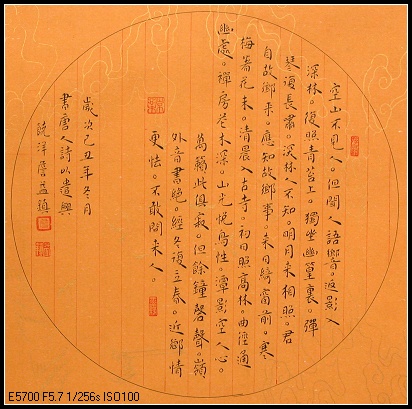 空山不見人。但聞人語響。返影入
深林。復照青苔上。獨坐幽篁裏。彈
琴復長嘯。深林人不知明月來相照。君
自故鄉來。應知故鄉事。來日綺窗前。寒
梅著花未。清晨入古寺。初日照高林。曲徑通
幽處。禪房花木深。山光悅鳥性。潭影空人心。
萬籟此俱寂。但餘鐘磬聲。嶺
外音書絕。經冬復立春。近鄉情
更怯。不敢問來人。
歲次己丑年冬月
書唐人詩以遣興
饒洋詹益鎮
E5700 F5.7 1/256s ISO100